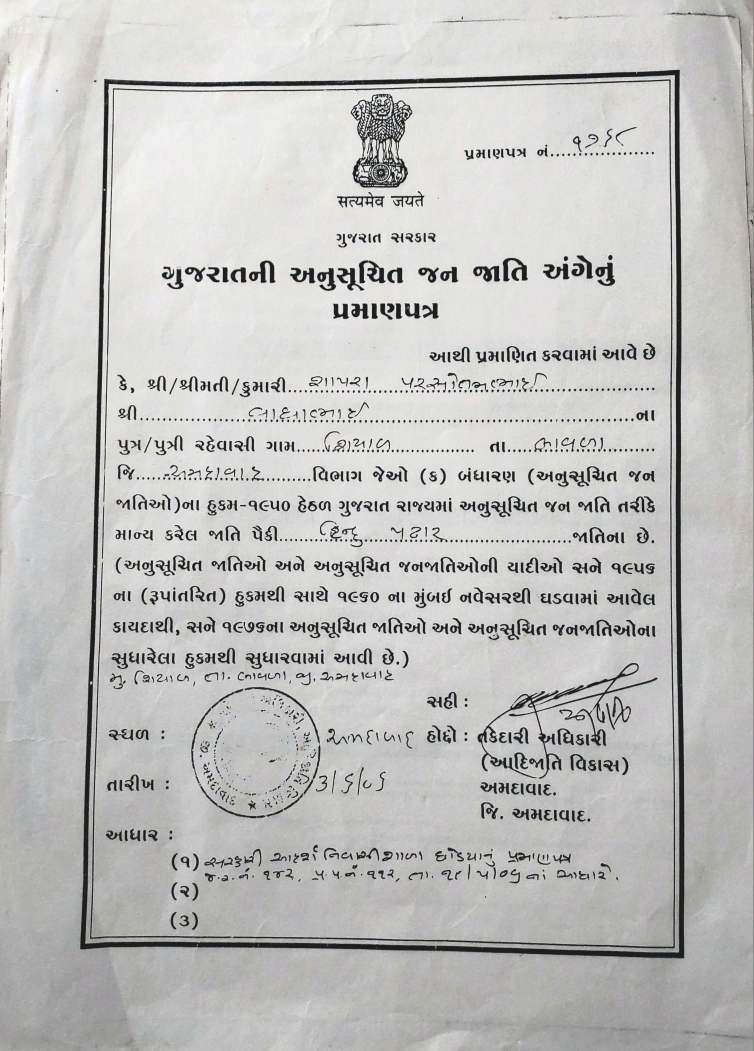 પ્રમાણપત્ર નં.
सत्यमेव जयते
ગુજરાત સરકાર
ગુજરાતની અનુસૂચિત જન જાતિ અંગેનું
પ્રમાણપત્ર
આથી પ્રમાણિત કરવામાં આવે છે
કે, શ્રી/શ્રીમતી/કુમારી પરસોતમભાઈ
શ્રી ના
પુત્ર/પુત્રી રહેવાસી ગામ શિયાળ તા બાવળા
જિ અમદાવાદ વિભાગ જેઓ (ક) બંધારણ (અનુસૂચિત જન
જાતિઓ)ના હુકમ-૧૯૫૦ હેઠળ ગુજરાત રાજ્યમાં અનુસૂચિત જન જાતિ તરીકે
માન્ય કરેલ જાતિ પૈકી હિન્દુ પઢાર જાતિના છે.
(અનુસૂચિત જાતિઓ અને અનુસૂચિત જનજાતિઓની યાદીઓ સને ૧૯૫૬
ના (રૂપાંતરિત) હુકમથી સાથે ૧૯૬૦ ના મુંબઈ નવેસરથી ઘડવામાં આવેલ
કાયદાથી, સને ૧૯૭૬ના અનુસૂચિત જાતિઓ અને અનુસૂચિત જનજાતિઓના
સુધારેલા હુકમથી સુધારવામાં આવી છે.)
મુ. શિયાળ, તા. બાવળા, જી. અમદાવાદ
સહી :
સ્થળ : અમદાવાદ હોદ્દો : તકેદારી અધિકારી
(આદિજાતિ વિકાસ)
તારીખ : અમદાવાદ.
જિ. અમદાવાદ.
આધાર :
(૧) સરકારી આદર્શ નિવાસી શાળા પ્રમાણપત્ર
જ.ર.નં. ૧૪૨, પ્ર.પ.નં. ૧૧૨, તા. ના આધારે.
(૨)
(૩)